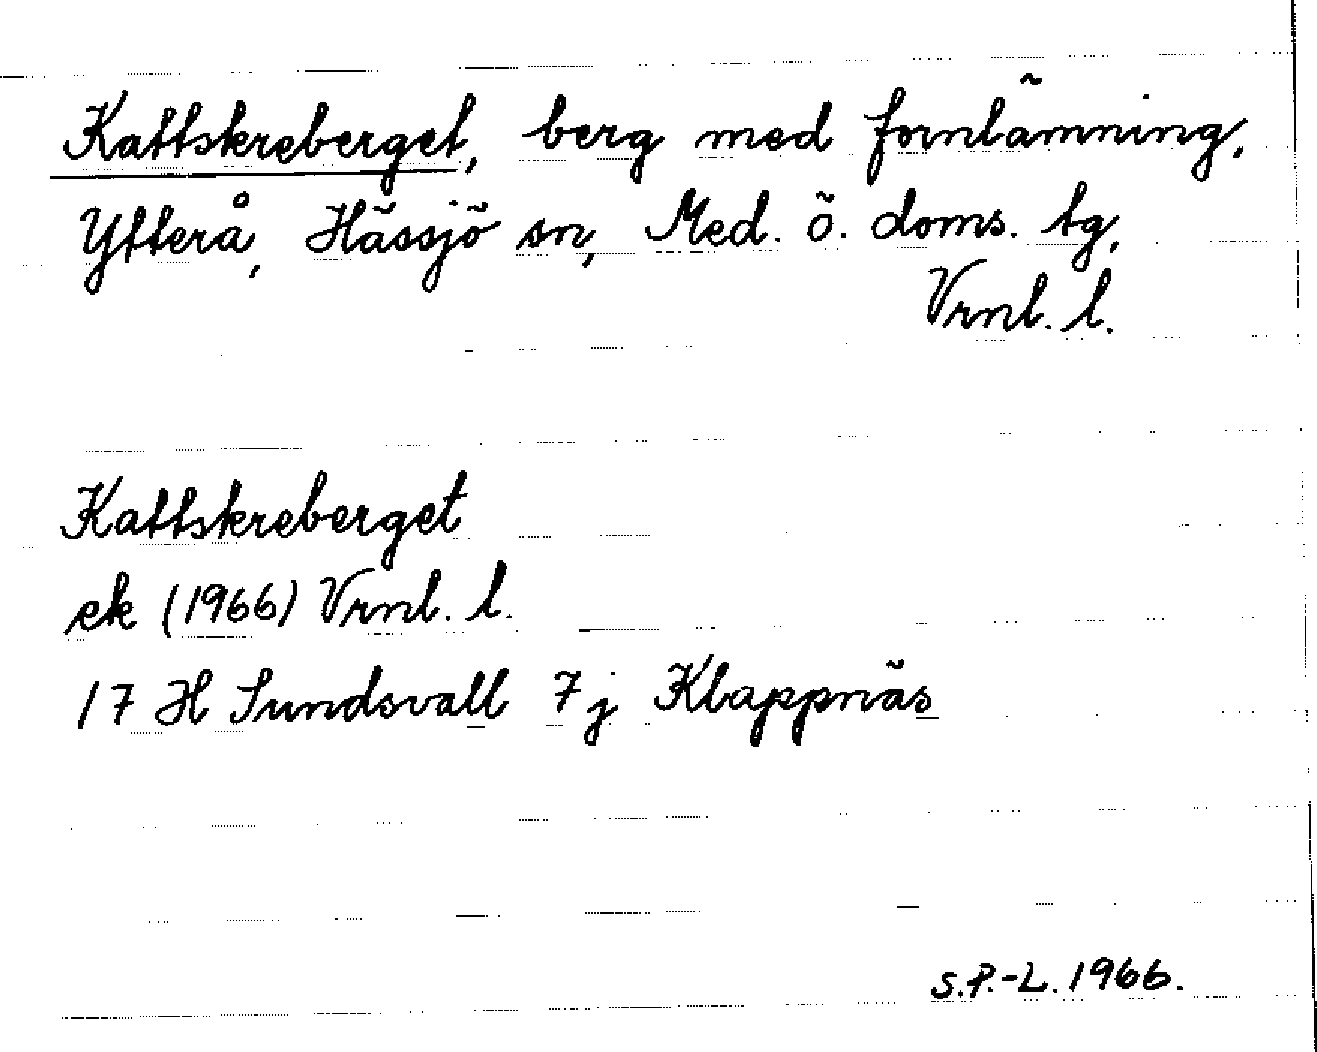 Kattskreberget, berg med fornlämning,
Ytterå, Hässjö sn, Med. ö. doms. tg,
Vrnl. l.
Kattskreberget
ek (1966) Vrnl. l.
17 H Sundsvall 7j Klappnäs
S.P.-L. 1966.